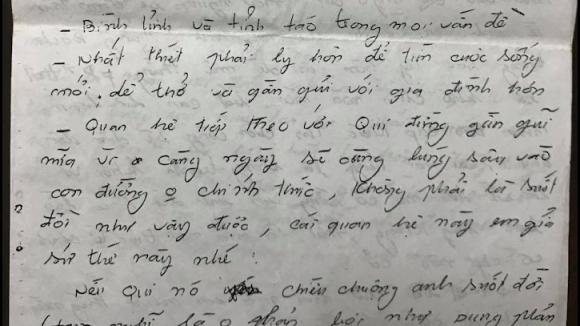 - Bình tỉnh và tỉnh táo trong mọi vấn đề
- Nhất thiết phải ly hôn để tìm cuộc sống
mới, dể thở và gần gũi với gia đình hơn
- Quan hệ tiếp theo với Qui đừng gần gũi
nữa vì càng ngày sẽ càng lúng sâu vào
con đường o chính thức, không phải là suốt
đời như vậy được, cái quan hệ này em giả
sử thế này nhé:
Nếu Qui nó chiều chuộng anh suốt đời
là o phản bội như Dung phản